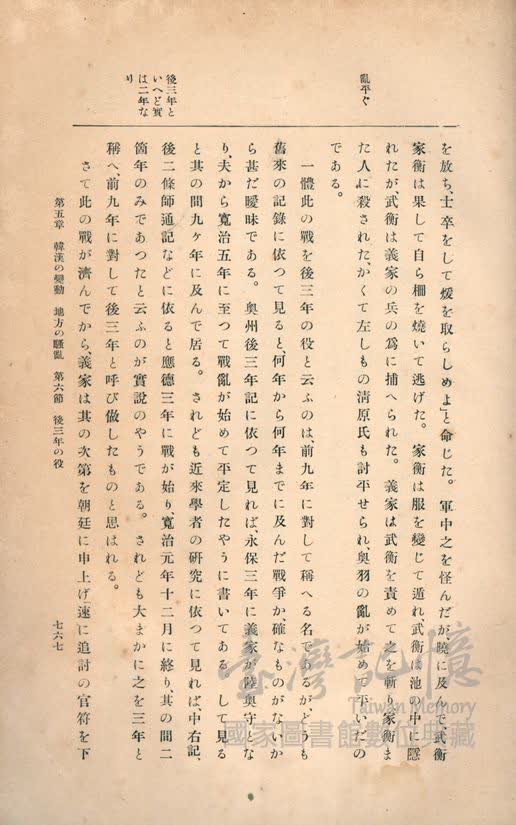 亂平ぐ
後三年と
いへど實
は二年な
り
を放ち、士卒をして煖を取らしめよ」と命じた。軍中之を怪んだが曉に及んで、武衡
家衡は果して自ら柵を燒いて逃げた。家衡は服を變じて遁れ武衡は池の中に隱
れたが、武衡は義家の兵の爲に捕へられた。義家は武衡を責めて之を斬り家衡ま
た人に殺された、かくて左しもの淸原氏も討平せられ、奧羽の亂が始めて平いだの
である。
一體此の戰を後三年の役と云ふのは、前九年に對して稱へる名であるが、どうも
舊來の記錄に依つて見ると、何年から何年までに及んだ戰爭か、確なものがないか
ら甚だ曖昧である。奧州後三年記に依つて見れば、永保三年に義家が陸奧守とな
り、夫から寬治五年に至つて戰亂が始めて平定したやうに書いてある。して見る
と其の間九ヶ年に及んで居る。されども近來學者の硏究に依つて見れば、中右記、
後二條師通記などに依ると應德三年に戰が始り、寬治元年十二月に終り、其の間二
箇年のみであつたと云ふのが實說のやうである。されども大まかに之を三年と
稱へ、前九年に對して後三年と呼び做したものと思はれる。
さて此の戰が濟んでから、義家は其の次第を朝廷に申上げ速に追討の官符を下
第五章 韓漢の變動 地方の騷亂 第六節 後三年の役
七六七
臺灣記憶
Taiwan Memory
國家圖書館數位典藏